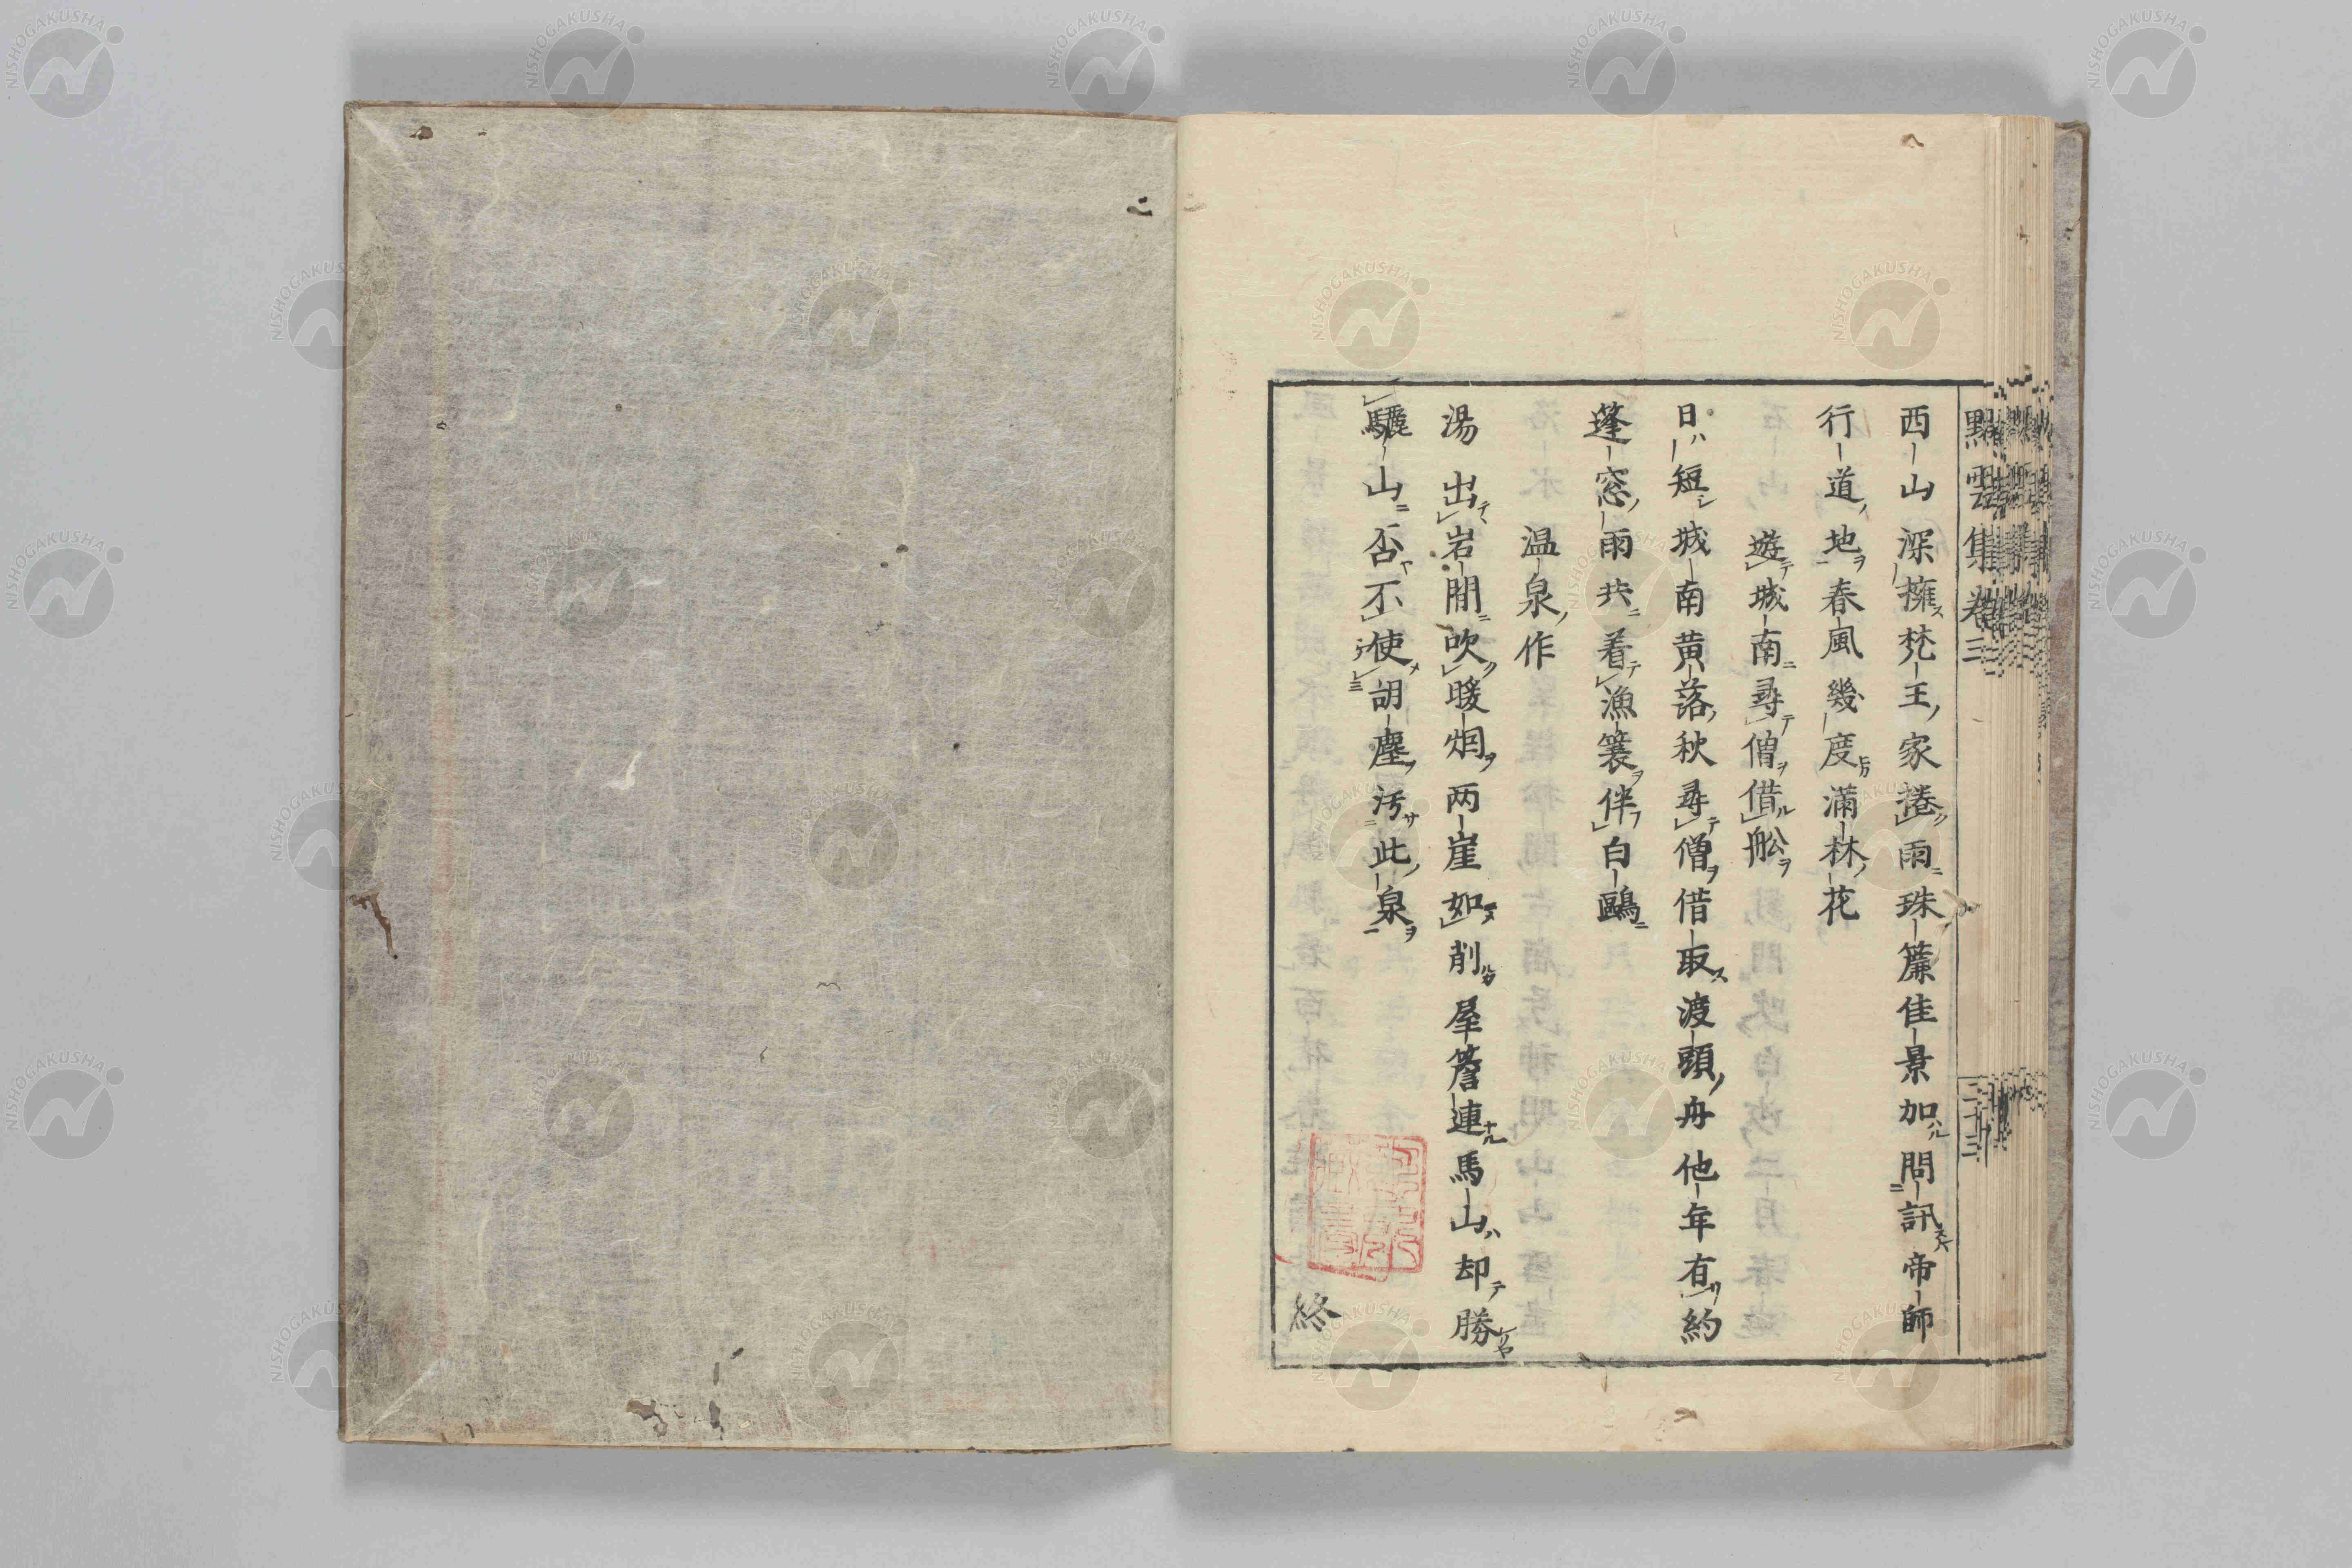 點雲集卷三
二十三
西山深擁梵王家捲雨珠簾佳景加問訊帝師
行道地春風幾度滿林花
遊城南尋僧借舩
日短城南黄落秋尋僧借取渡頭舟他年有約
蓬窓雨共着漁簑伴白鷗
温泉作
湯出岩間吹暖烟両崖如削屋簷連馬山却勝
驪山否不使胡塵汚此泉
終
NISHOGAKUSHA